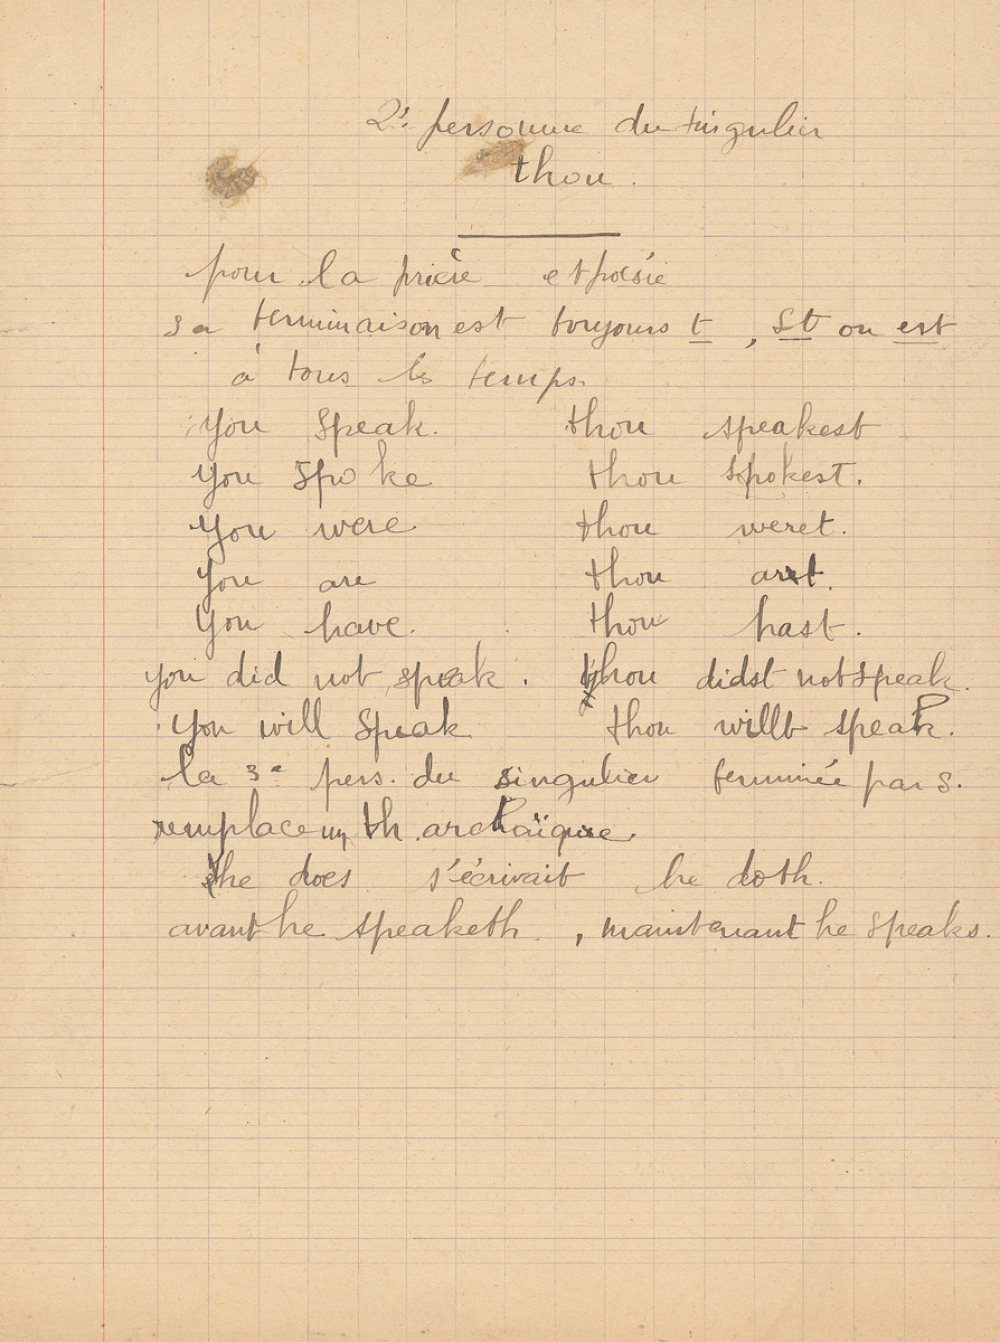 2e personne du singulier
thou.
pour la prière et poésie
sa terminaison est toujours t, st ou est
à tous les temps.
you speak. thou speakest
you spoke thou spokest.
you were thou weret.
you are thou art.
you have. thou hast.
you did not speak. thou didst not speak.
you will speak thou willt speak.
la 3e pers. du singulier terminée par s.
remplace un th archaïque.
he does s'écrivait he doth.
avant he speaketh, maintenant he speaks.